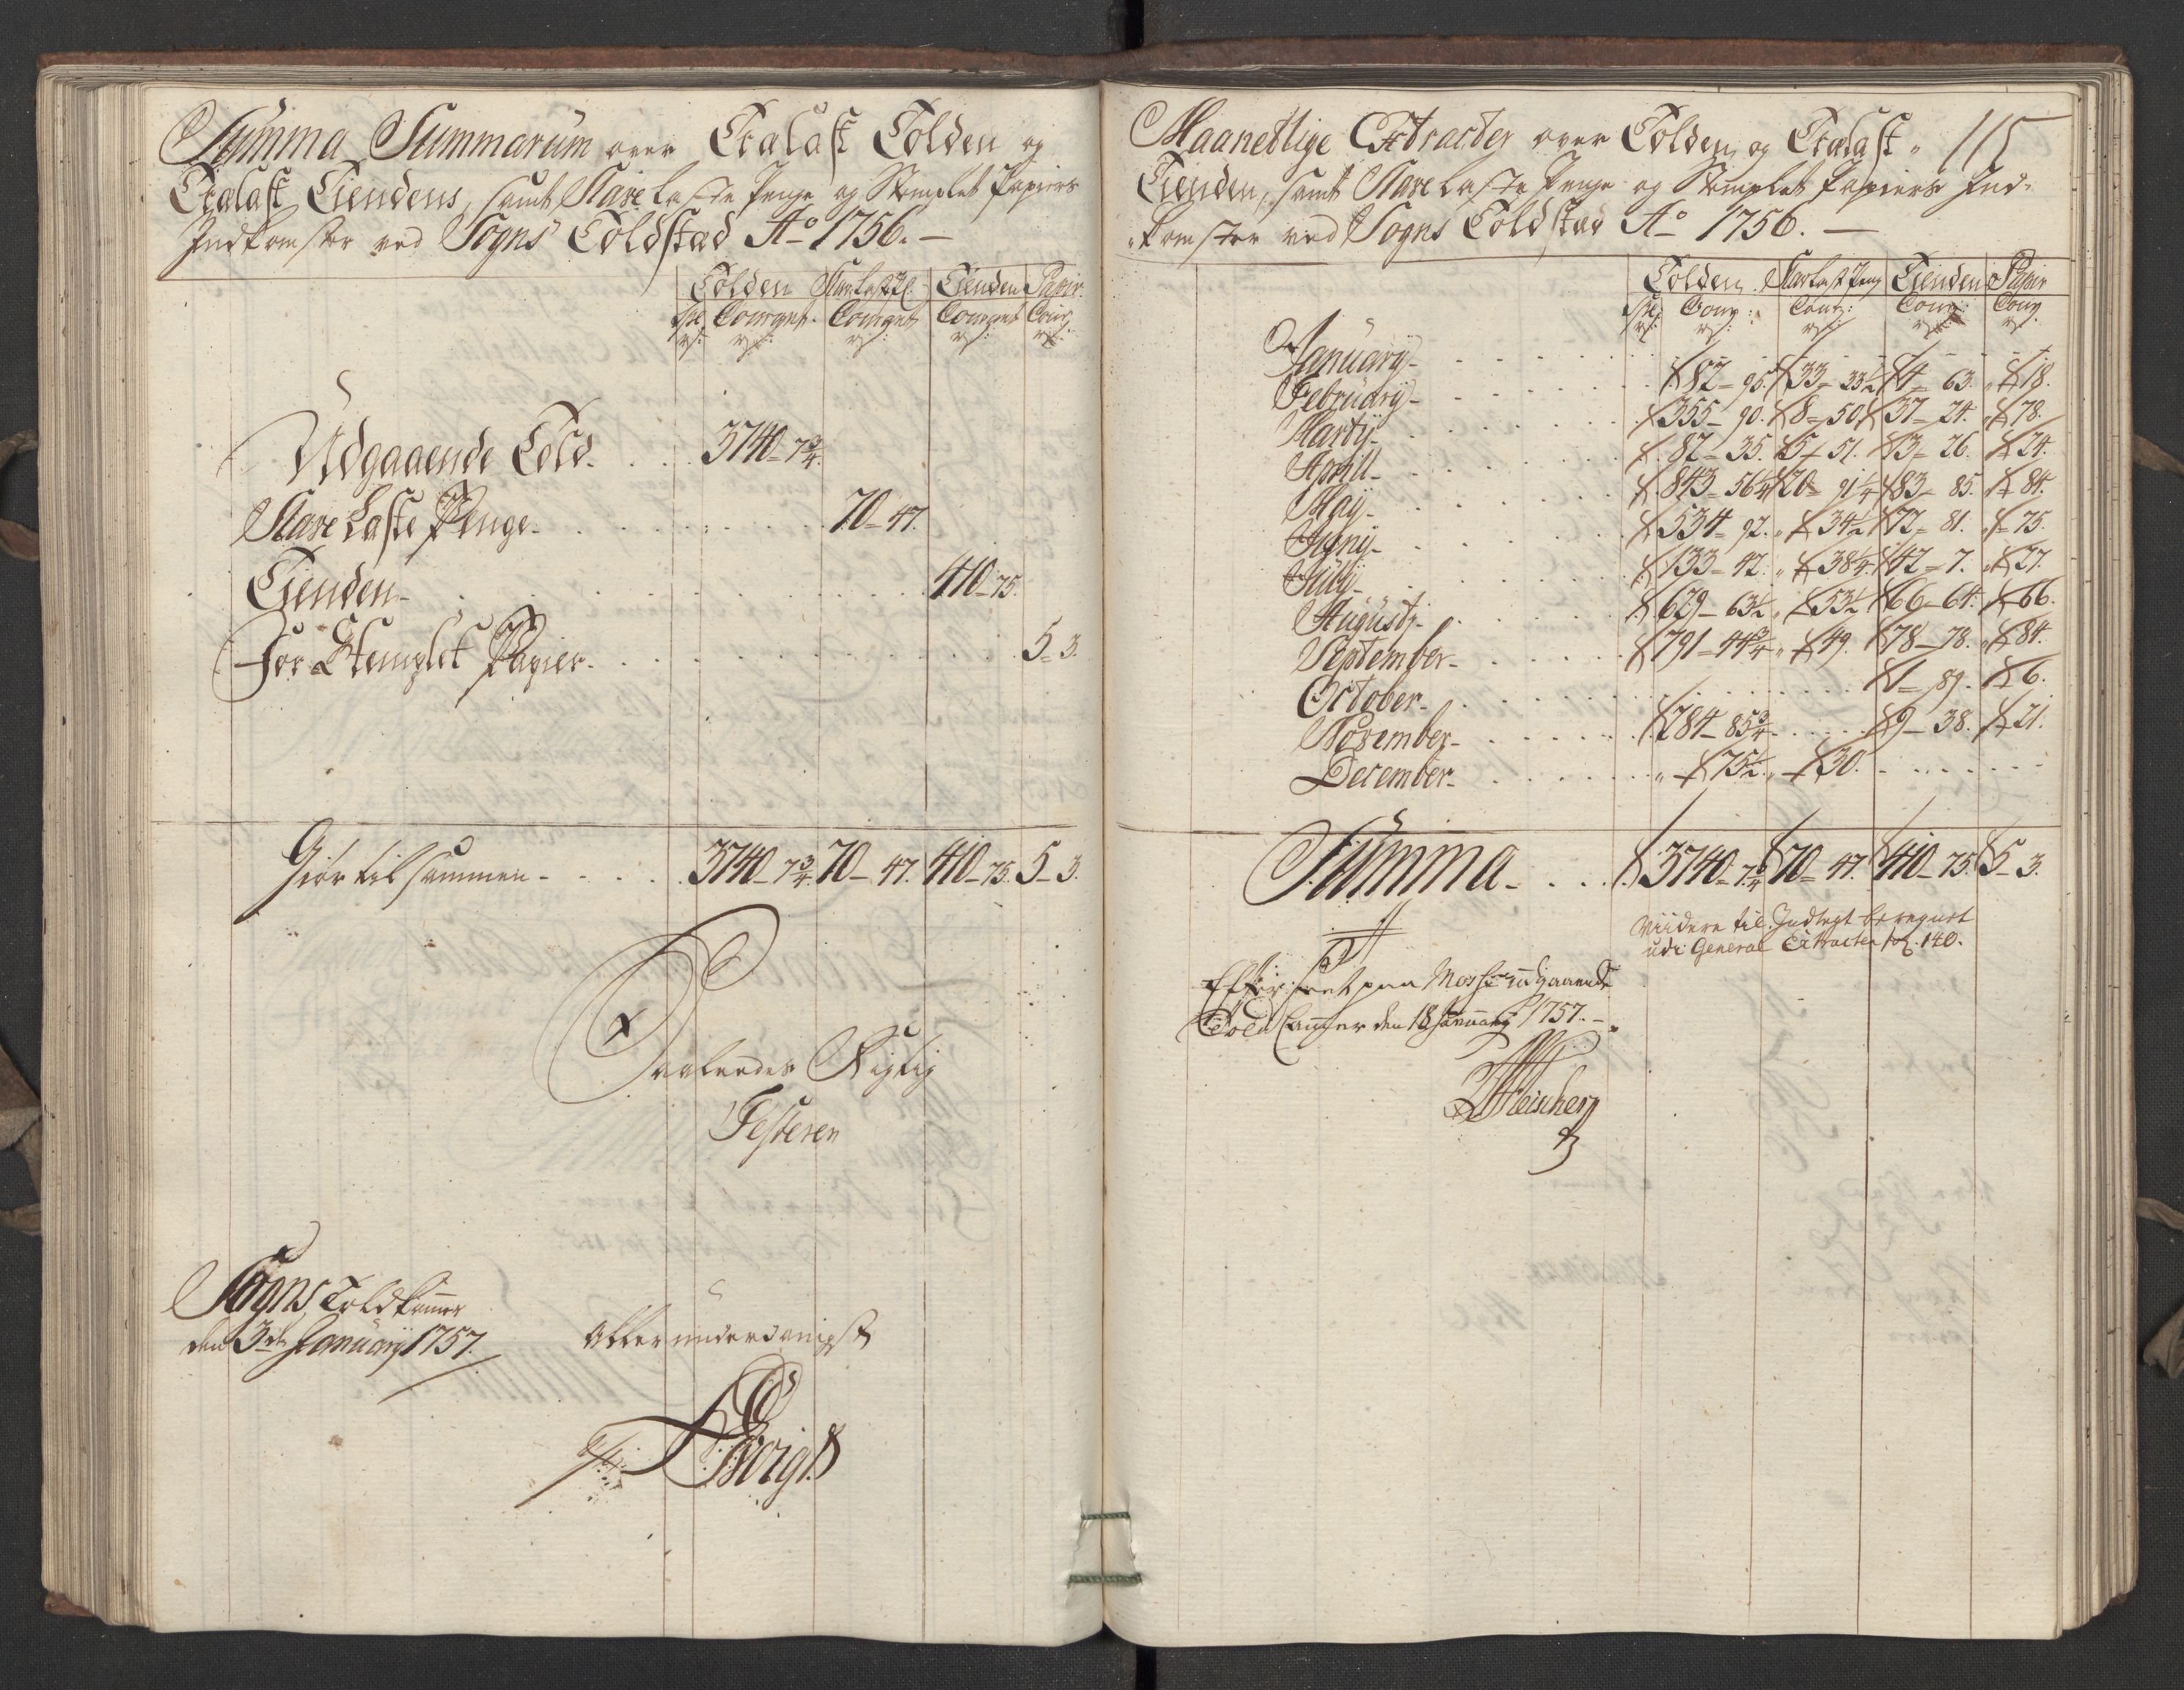 Summa Summarum over Tralast Tolden og
Tralast Tiendens, samt Skive Laste Penge og Stemplet Papiers
Indkomster ved Sogns Toldstæd Ao 1756. —
Tolden Tienden Papir
Courant Courant Courant Cour:
Udgaaende Told 3740 - 7 3/4.
Laste Penge 70 - 47.
Tienden 410 - 75.
For Stemplet Papier 5 - 3.
Giør tilsammen 3740 - 7 3/4. 70 - 47. 410 - 75. 5 - 3.
Saaledes Rigtig
Testeren
Sogns Toldkamer
den 3de January 1757.
Allerunderdanigst
115
Maanetlige Extracter over Tolden og Tralast
Tienden, samt Laste Penge og Stemplet Papiers Ind-
komster ved Sogns Toldstæd Ao 1756. —
Tolden Tienden Papir
Cour: Cour: Cour: Cour:
January 87 - 95. 33 - 33 1/2 4 - 63. 18.
February 355 - 90. 8 - 50. 37 - 24. 78.
Marty 82 - 35. 5 - 51. 3 - 26. 24.
Aprill 843 - 56 1/4 20 - 91 1/4 83 - 85. 84.
May 534 - 92. 34 1/2 72 - 81. 75.
Juny 133 - 42. 38 1/4 42 - 7. 27.
July 629 - 63 1/2 53 1/2 66 - 64. 66.
Augusty 791 - 44 3/4 49. 78 - 78. 84.
September 1 - 89. 6.
October 284 - 85 3/4 9 - 38. 21.
November 75 1/2 30.
December
Summa 3740 - 7 3/4 70 - 47. 410 - 75. 5 - 3.
Viidere til Indtegt beregnet
udi General Extracten fol. 140.
Efterseet paa
Told Camer den 18 January 1757. —